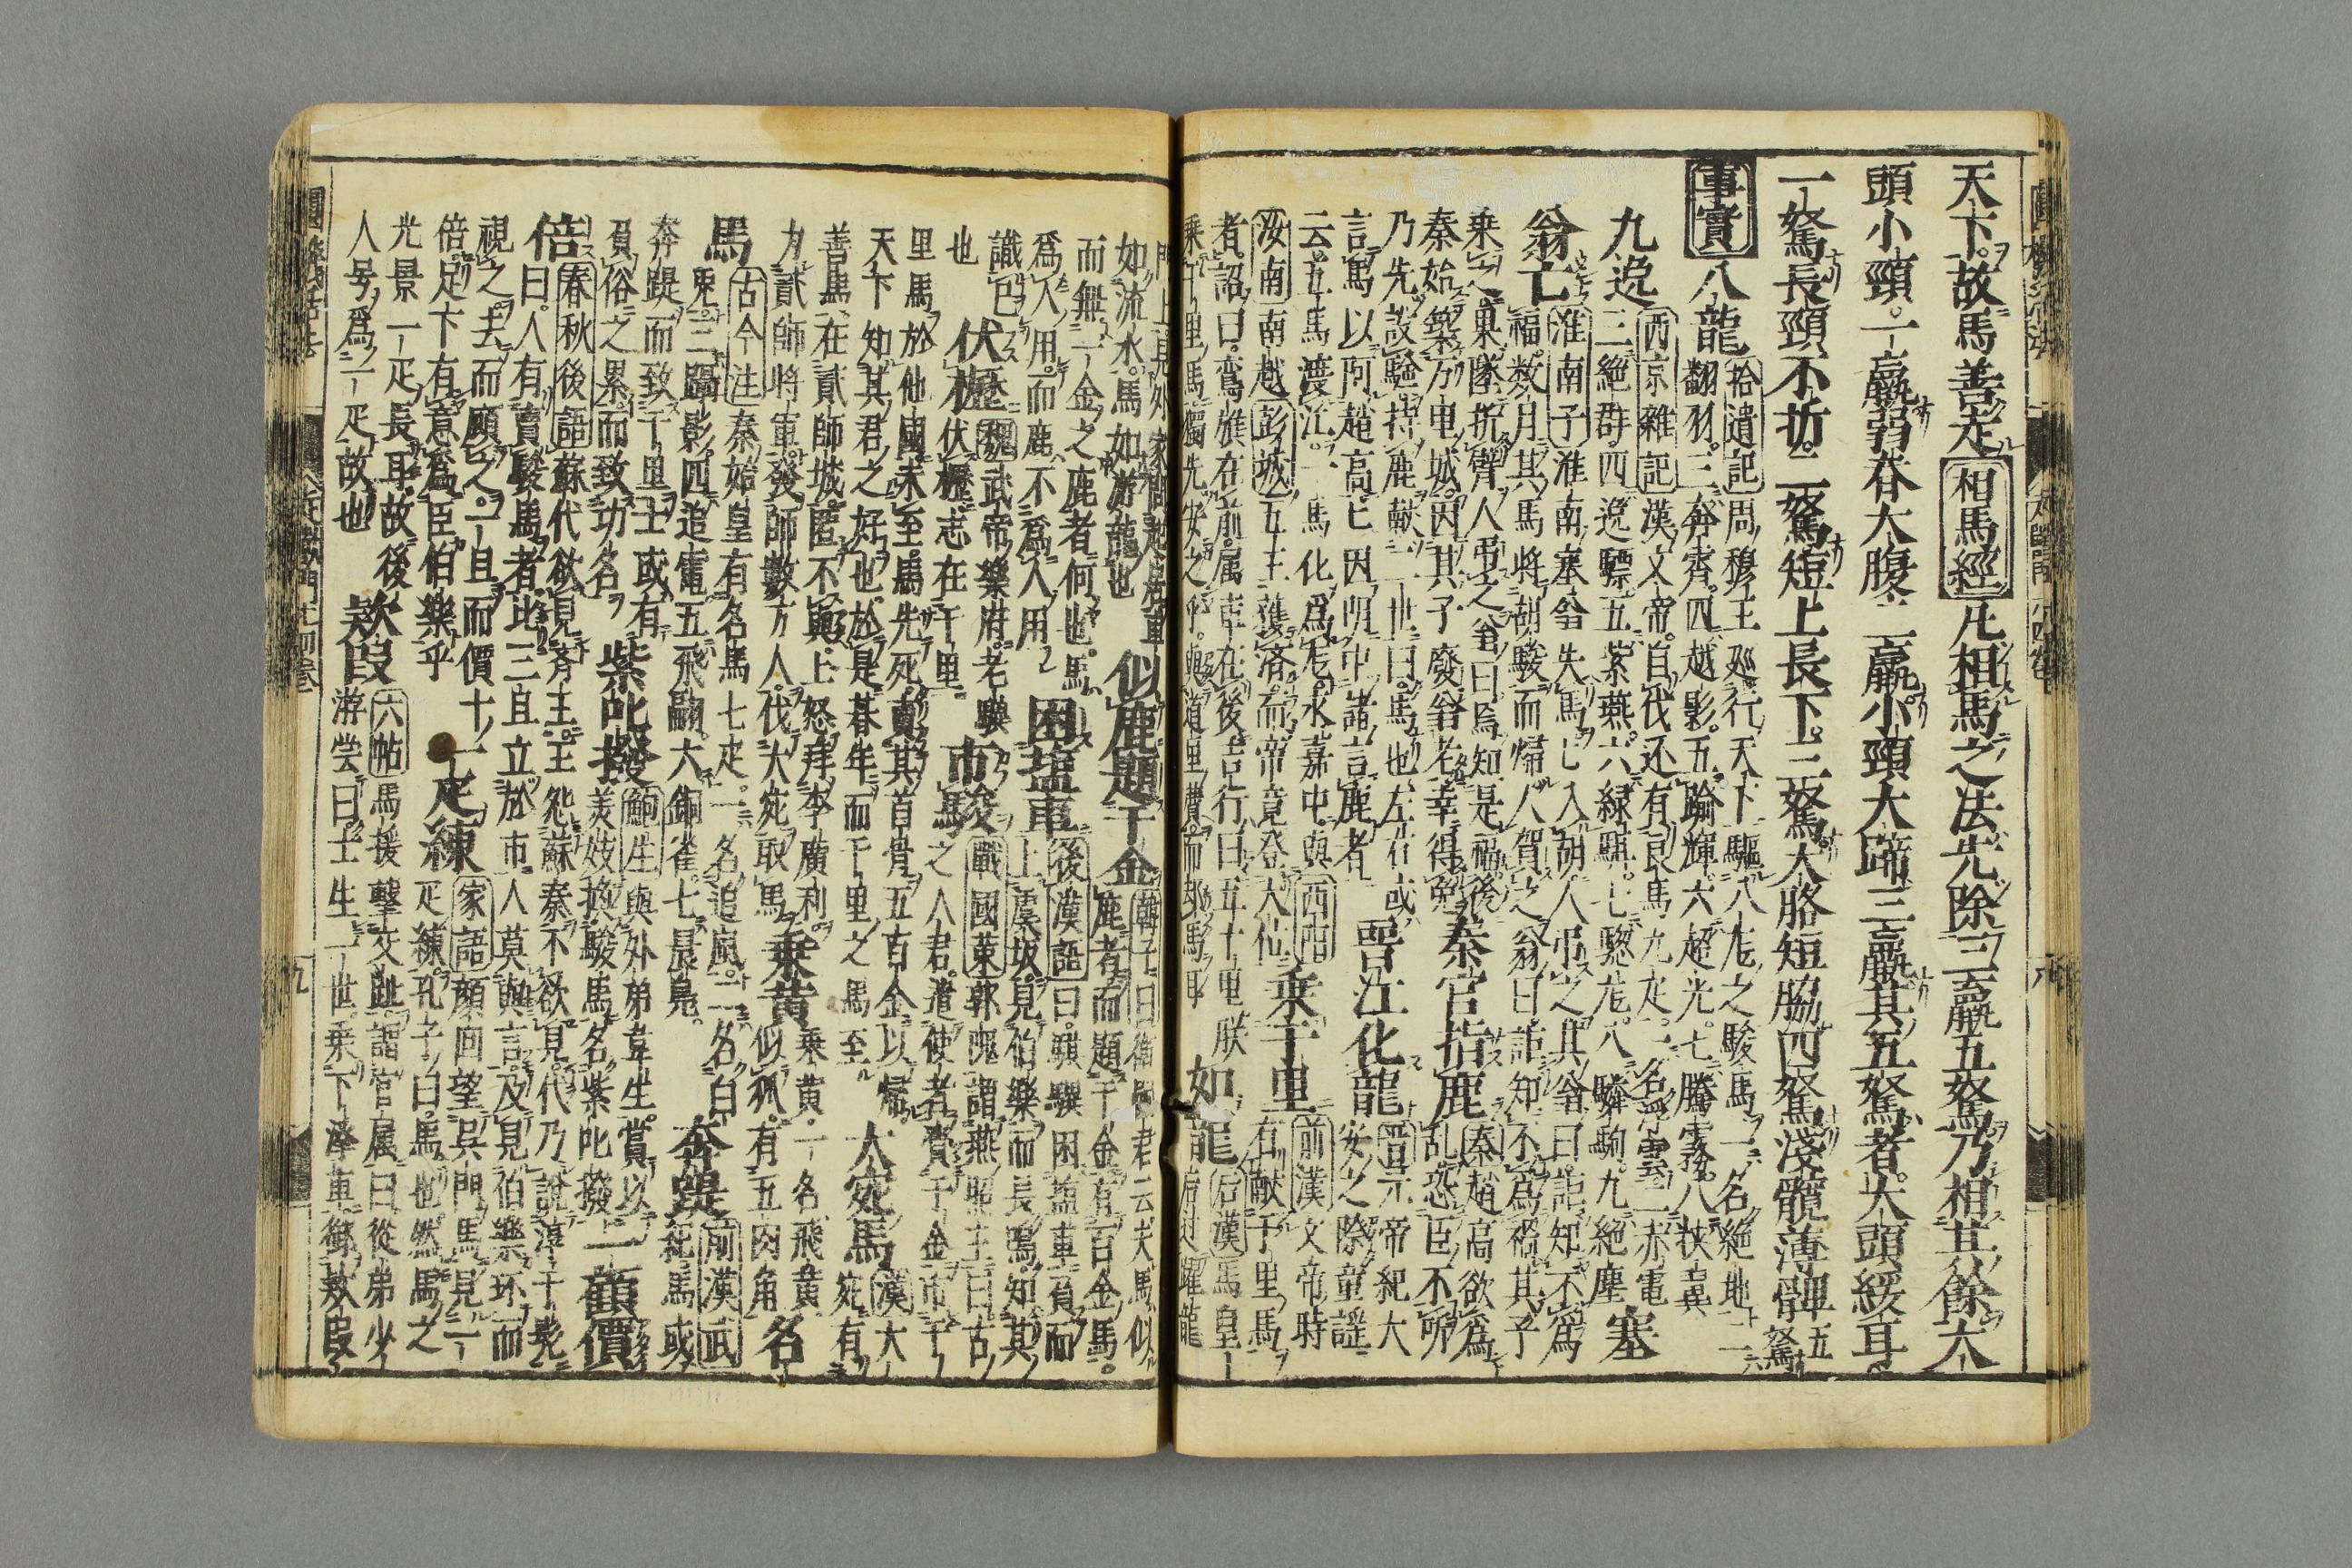 天下故馬善走相馬經凡相馬之法先除三羸五駑乃相其餘大
頭小頸一羸弱脊大腹二羸小頸大蹄三羸其五駑者大頭緩耳
一駑長頸不折二駑短上長下三駑大胳短脇四駑淺髖薄髀五駑
事實八龍拾遺記周穆王廵行天下驅八龙之駿馬一名絶地二
翻羽三奔霄四越影五踰輝六超光七騰霧八挾翼
九逸西京雜記漢文帝自代还有良馬九疋一名浮雲二赤電
三絶群四逸驃五紫燕六緑騏七驄龙八驎駒九絶塵塞
翁亡淮南子淮南塞翁失馬亡入胡人吊之其翁曰詎知不爲
福数月其馬將胡駿而歸人賀之翁曰詎知不爲禍其子
乗之果墜折臂人吊之翁曰焉知是福後
秦始築万里城因其子廢翁老幸得免秦官指鹿秦趙高欲爲
乱恐臣不听
乃先設騐持鹿献二世曰馬也左右或
言馬以阿趙高亡因明中諸言鹿者晉江化龍晋元帝紀大
安之際童謡
云五馬渡江一馬化爲龙永嘉中與西陌
汝南南越彭城五王獲済而帝竟登大仙乗千里前漢文帝時
有献千里馬
者詔曰鸞旗在前属車在後吉行曰五十里朕
乗千里馬獨先安之乎與道里費而却馬耳如龍后漢馬皇
后过躍龍
門上見外家問起居車
如流水馬如游龍也似鹿題千金韓子曰衛國君云夫馬似
鹿者而題千金有百金馬
而無一金之鹿者何也馬
爲人用而鹿不爲人用困塩車後漢語曰騏驥困塩車負而
上虞坂見伯樂而長鳴知其
識也伏櫪魏武帝樂府老驥
伏櫪志在千里市駿戰國策郭隗謂燕昭王曰古
之人君遣使者賫千金市千
里馬於他國未至馬先死買其首骨五百金以歸
天下知其君之好也於是朞年而千里之馬至大宛馬漢大
宛有
善馬在貳師城匿不與上怒拜李廣利
为貳師將軍發師數万人伐大宛取馬乗黄乗黄一名飛黄
似狐有五肉角名
馬古今注秦始皇有名馬七疋一名追風二名白
兎三躡影四追電五飛翩六銅雀七晨鳧奔踶前漢武
紀馬或
奔踶而致千里士或有
負俗之累而致功名紫叱撥鮑生與外弟韋生賞以
美妓換駿馬名紫叱撥二顧價
倍春秋後語蘇代欲見斉王王怨蘇秦不欲見代乃說淳于髡
曰人有賣駿馬者比三旦立於市人莫與言及見伯樂环而
視之去而顧之一旦而價十
倍足下有意爲臣伯樂乎一疋練家語顔回望呉門馬見一
疋練孔子曰馬也然馬之
光景一疋長耳故後
人号爲一疋故也欵段六帖馬援擊交趾謂官属曰從弟少
游尝曰士生一世乗下澤車御欵段